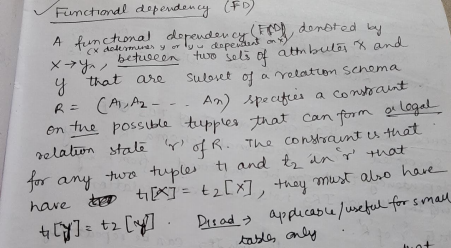 ✓ Functional dependency (FD)
A functional dependency (FD), denoted by
(x determines y or y is dependent on x)
X → y, between two sets of attributes X and
y that are subset of a relation schema
R = (A1, A2 - - - An) specifies a constraint
on the possible tupples that can form a legal
relation state 'r' of R. The constraint is that
for any two tuples t1 and t2 in 'r' that
have t1[X] = t2[X], they must also have
t1[y] = t2[y]. Disad → applicable/useful for small
tables only